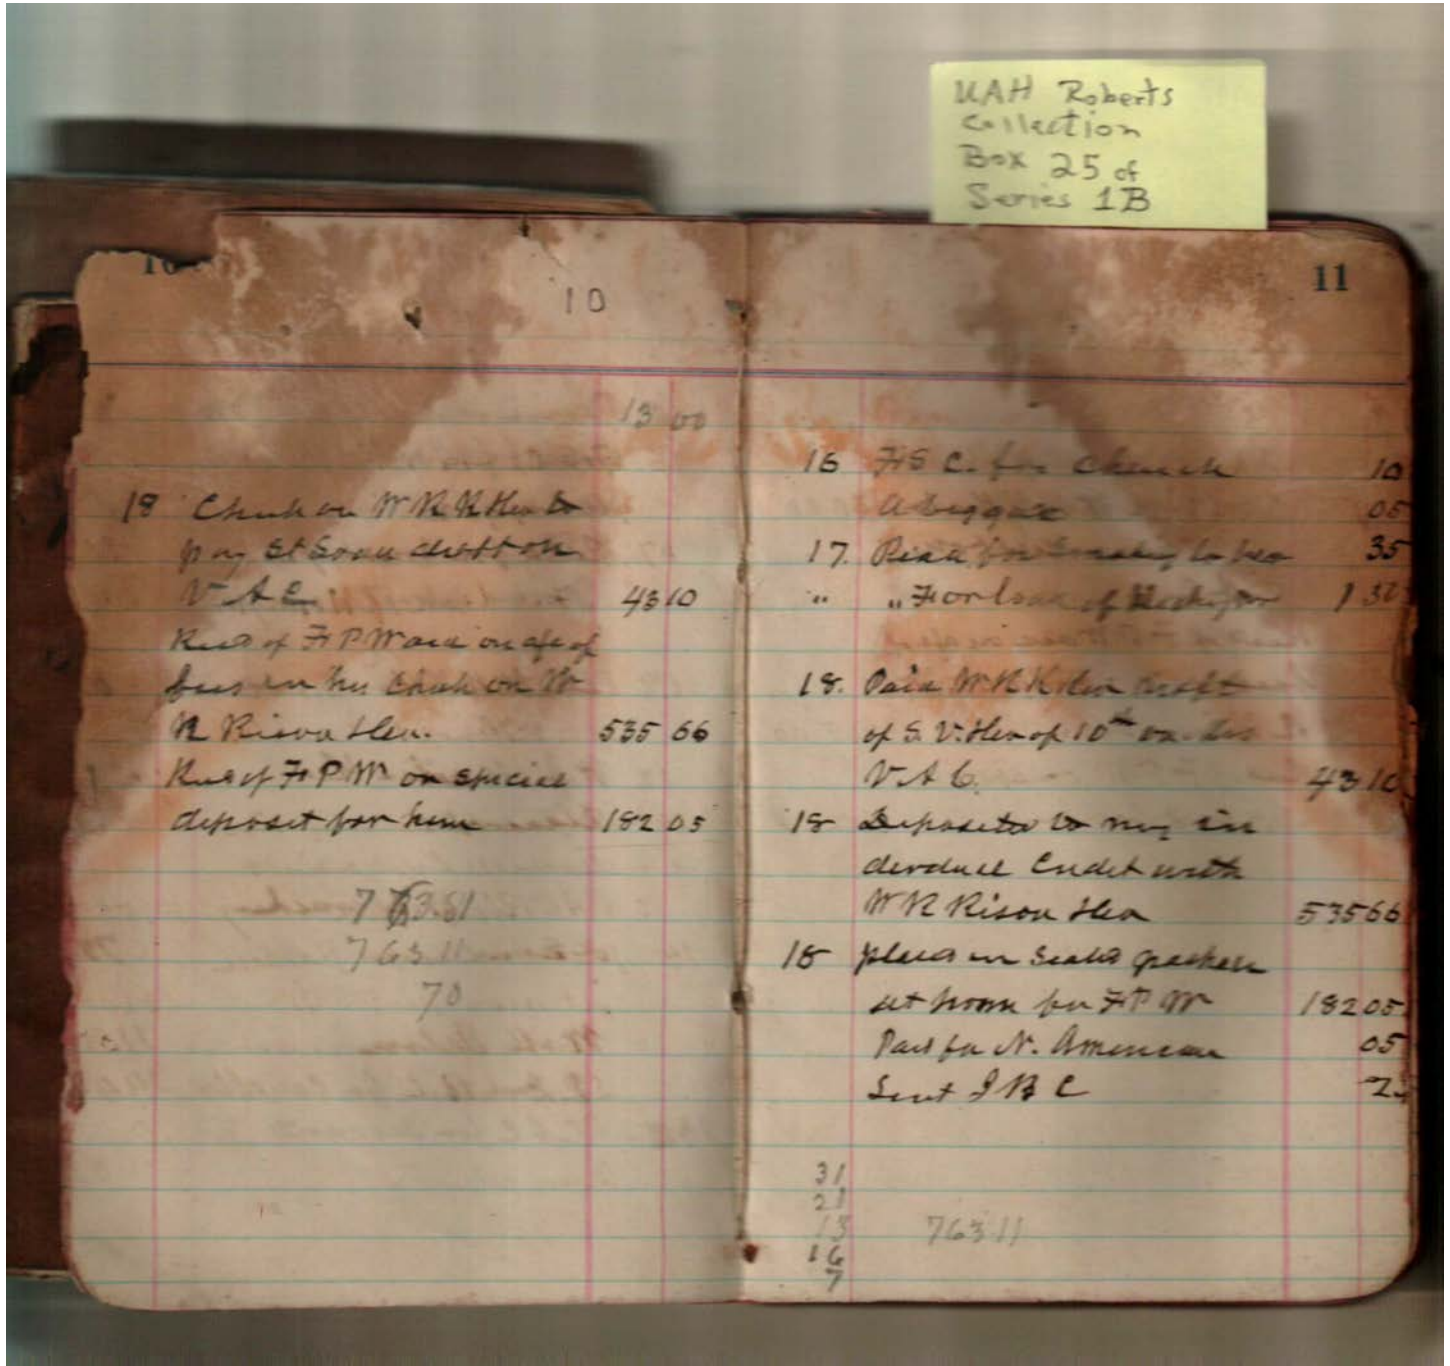 UAH Roberts
Collection
Box 25 of
Series 1B
10
10
13 00
18 Check on W R R & Co to
pay St draft on
V A C 43 10
Recd of F P Ward on a/c of
fees in his Check on W
R Rison & Co. 535 66
Recd of F P W on special
deposit for him 182 05
7763.81
763 11
70
11
16 H S C. for Church 10
A beggar 05
17. Paid for 35
" " For loan of 1
18. Paid W R R & Co draft
of S. V. & Co of 10th on
V. A C. 43 10
18 Deposited to my in
dividual Credit with
W R Rison & Co 535 66
18 placed in Sealed package
at home for F P W 182 05
Paid for N. American 05
Sent J B C 2
31
21
13
16
7
763 11